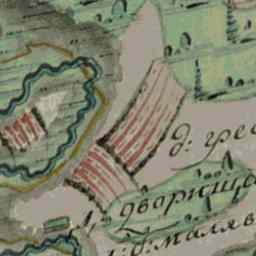 д: грес
дворища
д: маляв